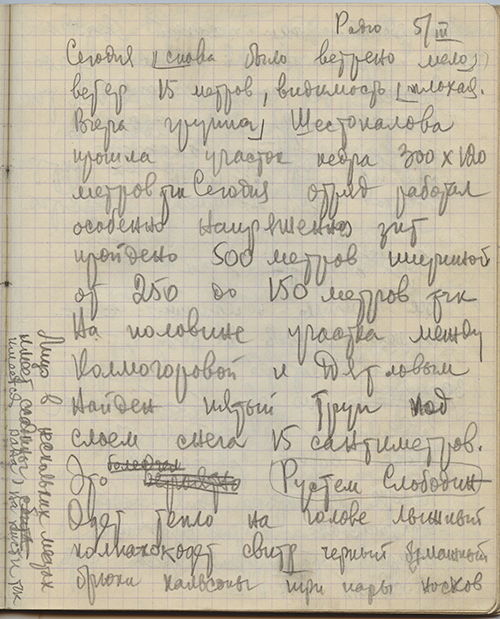 Радио 5/III
Сегодня снова было ветрено мело,
ветер 15 метров, видимость плохая.
Вчера группа Шестопалова
прошла участок кедра 300 х 120
метров тчк Сегодня отряд работал
особенно напряженно зпт
пройдено 500 метров шириной
от 250 до 150 метров тчк
На половине участка между
Колмогоровой и Дятловым
Найден пятый труп под
слоем снега 15 сантиметров.
Это Рустем Слободин
Одет тепло на голове лыжный
свитр черный
брюки кальсоны три пары носков
Лицо в нескольких местах
имеет ссадины,
имеется рана на кисти тчк